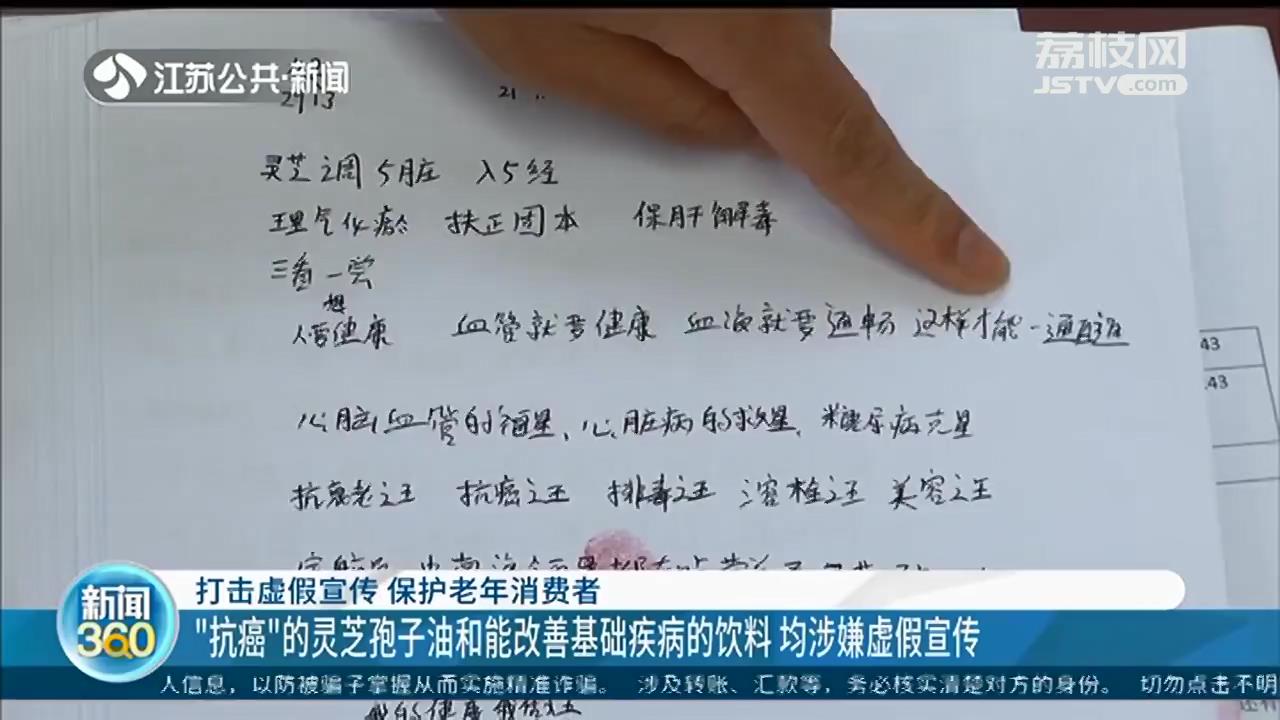 江苏公共·新闻
荔枝网
JSTV.com
2913
21
灵芝调5脏 入5经
理气化瘀 扶正固本 保肝解毒
三看一尝
想
人要健康 血管就要健康 血液就要通畅 这样才能一通百通
43
.43
心脏血管的福星、心脏病的救星、糖尿病克星
抗衰老之王 抗癌之王 排毒之王 溶栓之王 美容之王
新闻
360
打击虚假宣传 保护老年消费者
"抗癌"的灵芝孢子油和能改善基础疾病的饮料 均涉嫌虚假宣传
人信息，以防被骗子掌握从而实施精准诈骗。 涉及转账、汇款等，务必核实清楚对方的身份。 切勿点击不明
的健康